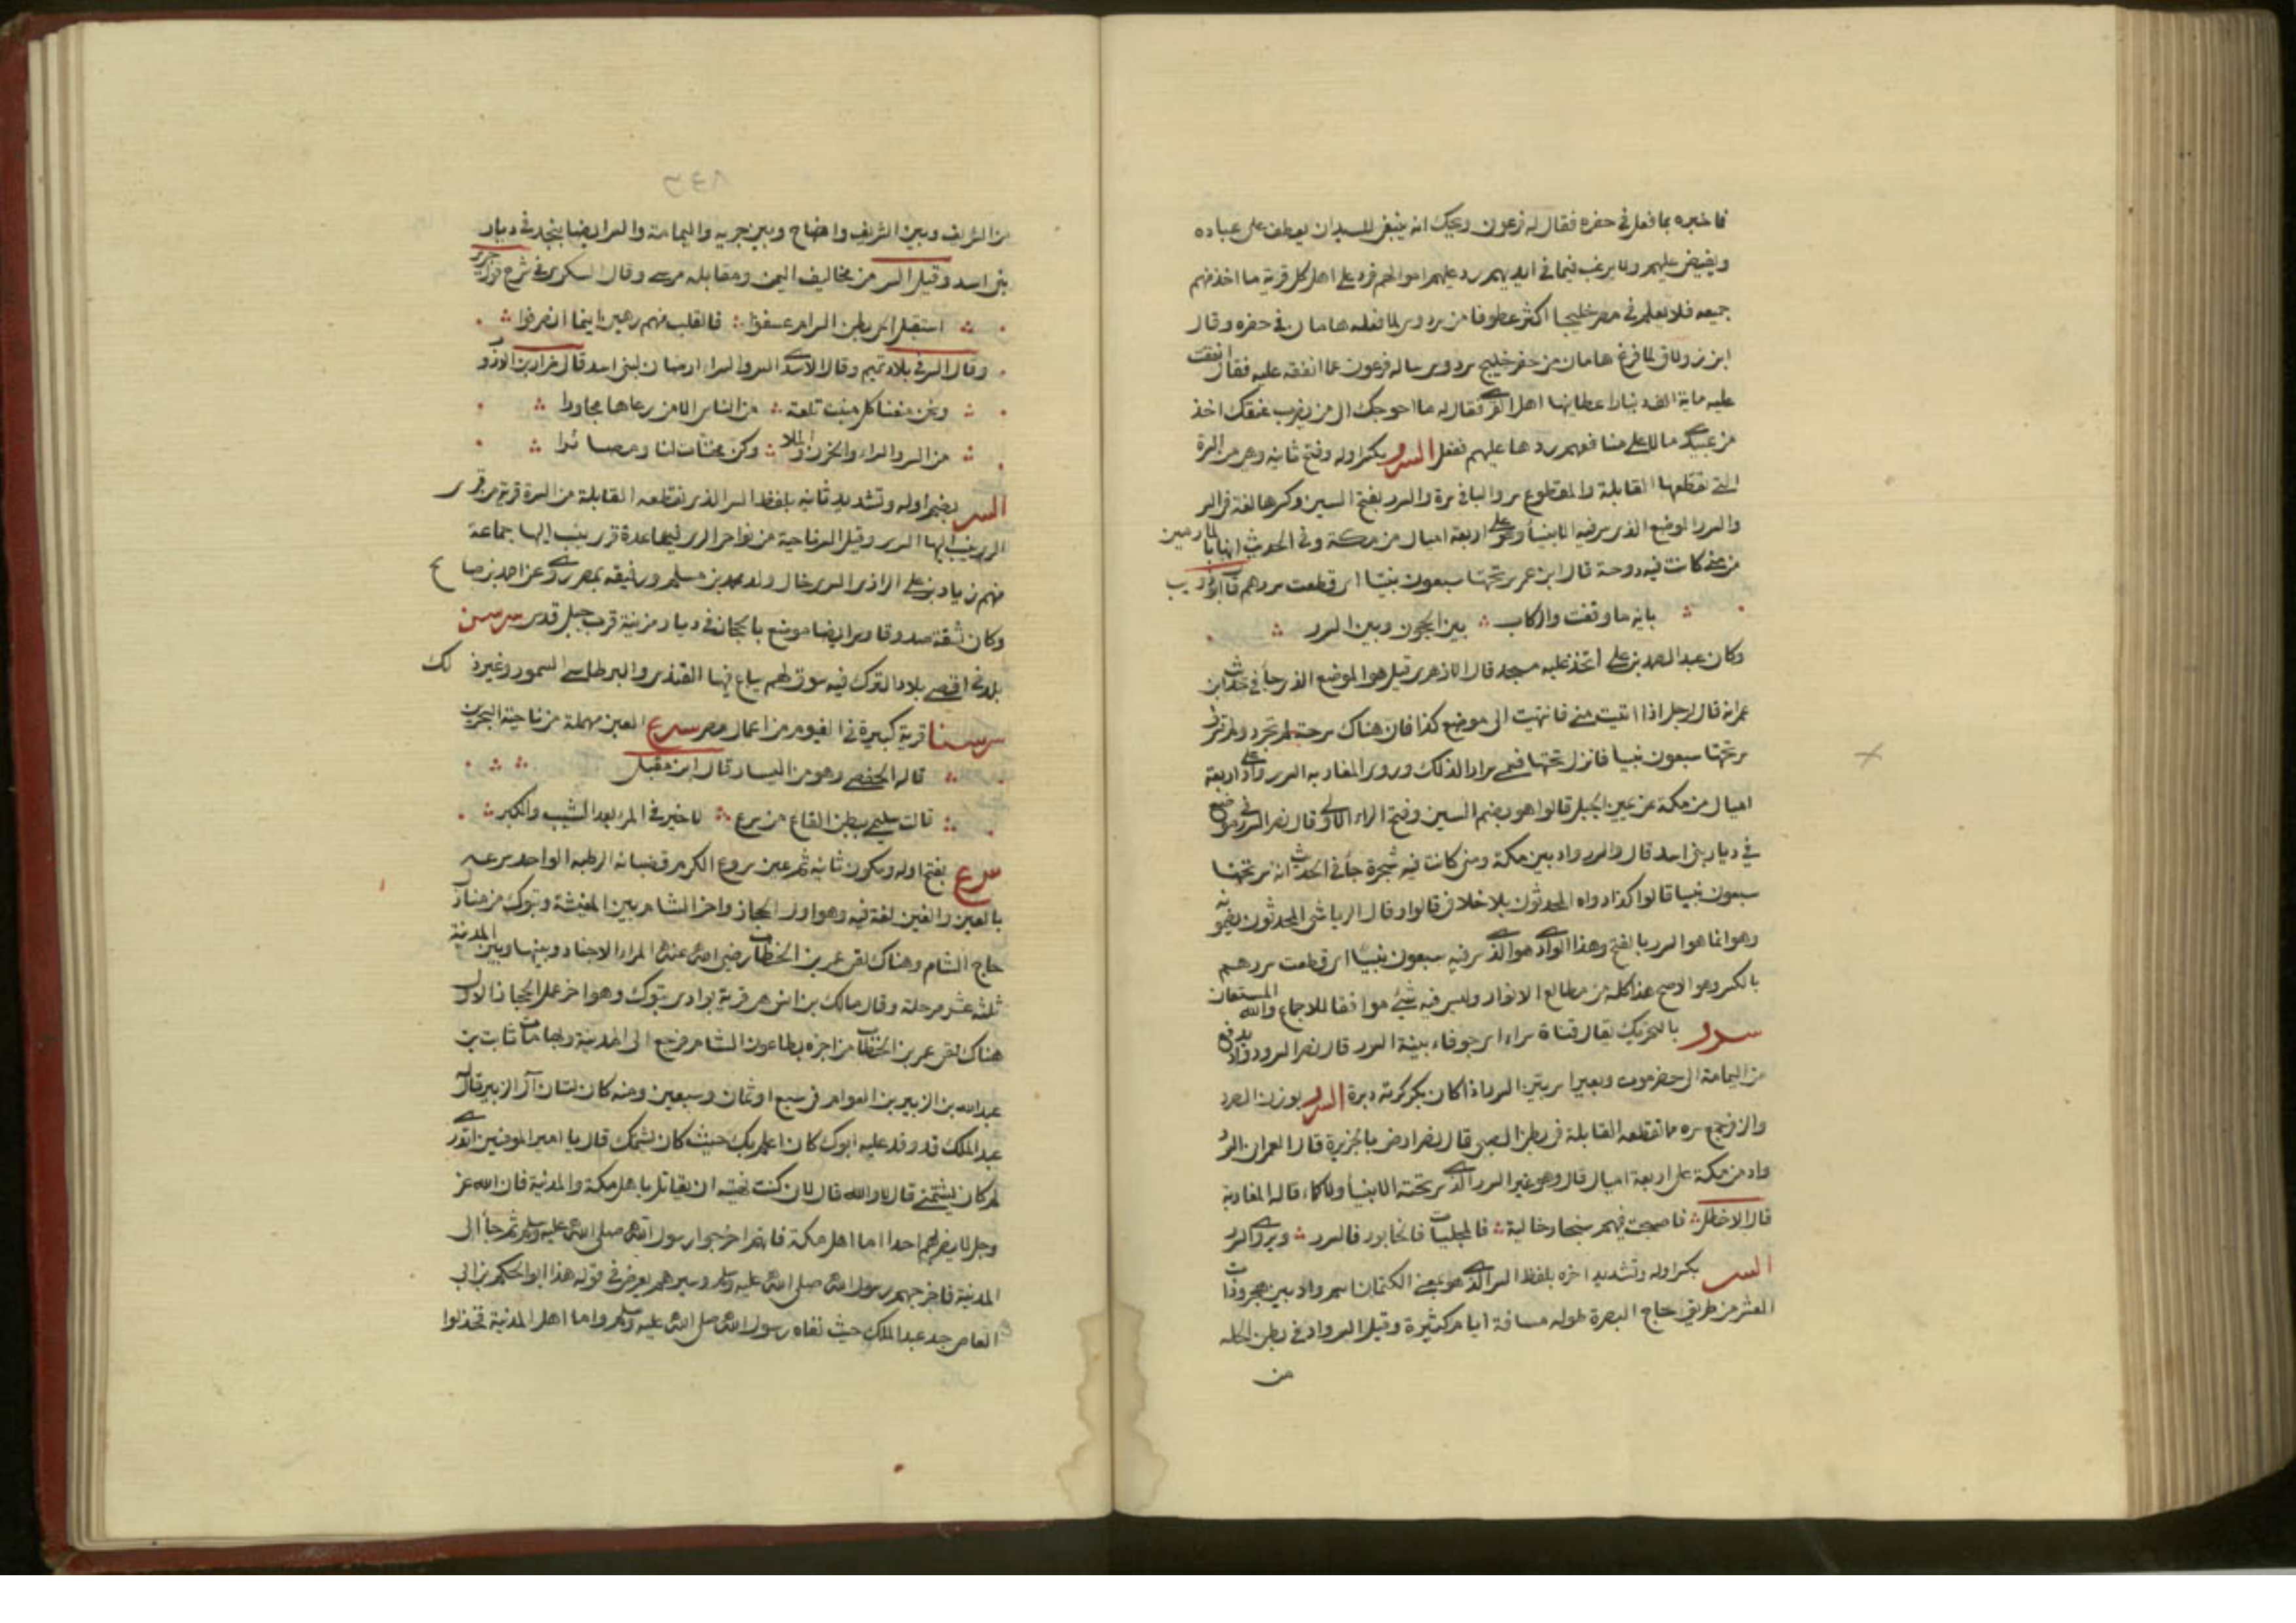 فاخبره بما فعل في حفره فقال له فرعون ويحك انه ينبغي للسيد ان يعطف على عباده
ويفيض عليهم ولا يرغب فيما في ايديهم رد عليهم اموالهم فرد على اهل كل قرية ما اخذ منهم
جميعه فلا يعلم في مصر خليجا اكثر عطوفا من سردوس لما فعله هامان في حفره وقال
ابن زولاق لما فرغ هامان من حفر خليج سردوس ساله فرعون عما انفقه عليه فقال انفقت
عليه ماية الف دينار اعطانيها اهل القرى فقال له ما احوجك الى من يضرب عنقك اخذ
من عبيدي مالا على منافعهم ردها عليهم ففعل السرر بكسر اوله وفتح ثانيه وهو من السرة
التي تقطعها القابلة والمقطوع سر والباقي سرة والسرر بفتح السين وكسرها لغة في السر
والسرر الموضع الذي سر فيه الانبيأ وهو على اربعة اميال من مكة وفي الحديث انها بالمازمين
من منى كانت فيه دوحة قال ابن عمر سر تحتها سبعون نبيا اي قطعت سررهم قال ابو ذويب
باية ما وقفت والركاب بين الحجون وبين السرر
وكان عبد الصمد بن علي اتخذ عليه مسجد قال الازهري قيل هو الموضع الذي جأ في حديث ابن
عمر انه قال لرجل اذا اتيت منى فانتهيت الى موضع كذا فان هناك سرحة لم تجرد ولم تسرف
سر تحتها سبعون نبيا فانزل تحتها فسمي سررا لذلك وروى المغاربه السرر واد على اربعة
اميال من مكة عن يمين الجبل قالوا هو بضم السين وفتح الراء الاولى قال نصر السرر في موضع
في ديار بني اسد قال والسرر واد بين مكة ومنى كانت فيه شجرة جأ في الحديث انه سر تحتها
سبعون نبيا قالوا كذا رواه المحدثون بلا خلاف قالوا وقال الرياشي المحدثون يضمونه
وهو انما هو السرر بالفتح وهذا الوادي هو الذي سر فيه سبعون نبيا اي قطعت سررهم
بالكسر وهو الاصح هذا كله من مطالع الانوار وليس فيه شيء موافقا للاجماع والله المستعان
سرر بالتحريك يقال قناة سراء اي جوفاء بينة السرر قال نصر السرر واد يدفع
من اليمامة الى حضرموت وبعير اسر بين السرر اذا كان بكركرته دبرة السرر بوزن الصرد
والزفر جمع سره ما تقطعه القابلة في بطن الصبي قال نصر ارض بالجزيرة قال العمراني السرر
واد من مكة على اربعة اميال قال وهو غير السرر الذي سر تحته الانبيأ ولا كما قاله المغاربة
قال الاخطل فاصبحت منهم سنجار خالية فالمحلبيات فالخابور فالسرر ويروى السرر
السر بكسر اوله وتشديد اخره بلفظ السر الذي هو بمعنى الكتمان اسم واد بين هجر وذات
العشر من طريق حاج البصرة طوله مسافة ايام كثيرة وقيل السر واد في بطن الحله
من
من الشريف وبين الشريف واضاح وبين ضريه واليمامة والسر ايضا بنجد في ديار
بني اسد وقيل السر من مخاليف اليمن ومقابله مرسى وقال السكري في شرح قول جرير
استقبل الحي بطن السر ام عسفوا فالقلب منهم رهين اينما انصرفوا
وقال السر في بلاد تميم وقال الاسدي السر والسراء ارضان لبني اسد قال ضرار بن الازور
ونحن منعنا كل منبت تلعة من الناس الا من رعاها مجاورا
من السر والسراء والحزن والملا وكن مخنات لنا ومصائرا
السر بضم اوله وتشديد ثانيه بلفظ السر الذي تقطعه القابلة من السرة قرية من قرى
الري ينسب اليها السري وقيل السر ناحية من نواحي الري فيها عدة قرى ينسب اليها جماعة
منهم زياد بن علي الرازي السري خال ولد محمد بن مسلم ورفيقه بمصر روى عن احمد بن صالح
وكان ثقة صدوقا وسر ايضا موضع بالحجاز في ديار مزينة قرب جبل قدس سرسن
بلدة في اقصى بلاد الترك فيه سوق لهم يباع فيها القندر والبرطاسي السمور وغير ذلك
سرسنا قرية كبيرة في الفيوم من اعمال مصر سرع العين مهملة من ناحية البحرين
قاله الحفصي وهو من اليسار قال ابن مقبل
قالت سليمى ببطن القاع من سرع لا خير في المرء بعد الشيب والكبر
سرغ بفتح اوله وسكون ثانيه ثم غين سروغ الكرم قضبانه الرطبه الواحد سرغ
بالعين والغين لغة فيه وهو اول الحجاز واخر الشام بين المغيثة وتبوك من منازل
حاج الشام وهناك لقي عمر بن الخطاب رضى الله عنه امراء الاجناد وبينها وبين المدينة
ثلثة عشر مرحلة وقال مالك بن انس هي قرية بوادي تبوك وهو اخر عمل الحجاز الاول
هناك لقي عمر بن الخطاب من اخبره بطاعون الشام فرجع الى المدينة وبها مات ثابت بن
عبد الله بن الزبير بن العوام في سبع او ثمان وسبعين ومنه كان لسان آل الزبير قال له
عبد الملك قد وفد عليه ابوك كان اعلم بك حيث كان يشتمك قال يا امير المومنين اتدري
لم كان يشتمني قال لا والله قال لان كنت نهيته ان يقاتل باهل مكة والمدينة فان الله عز
وجل لا ينصر بهم احدا اما اهل مكة فانهم اخرجوا رسول الله صلى الله عليه وسلم ثم جأ الى
المدينة فاخرجهم رسول الله صلى الله عليه وسلم وسيرهم يعرض في قوله هذا ابو الحكم بن ابي
العاص جد عبد الملك حيث نفاه رسول الله صلى الله عليه وسلم واما اهل المدينة فخذلوا